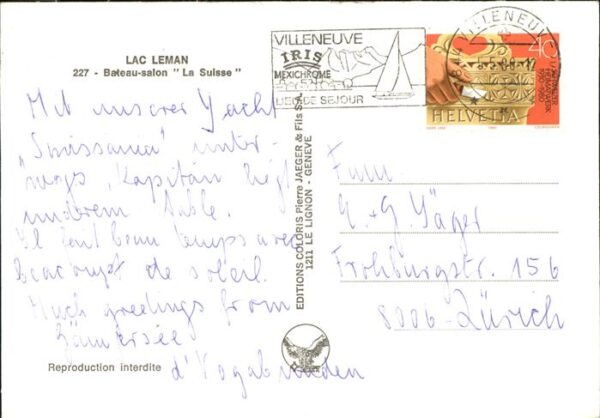 LAC LEMAN
227 - Bateau-salon "La Suisse"
Mit unserer Yacht
"Swissania" unter-
wegs, Kapitän liegt
underem Table.
Il fait beau temps avec
beacoupt de soleil.
Much greedings from
d'Vagabunden
Reproduction interdite
EDITIONS COLORIS Pierre JAEGER & Fils S.A.
1211 LE LIGNON - GENEVE
VILLENEUVE
IRIS
MEXICHROME
LIEU DE SEJOUR
1844 VILLENEUVE
40
HELVETIA
Fam.
G. + G. Jäger
Frohburgstr. 156
8006 - Zürich